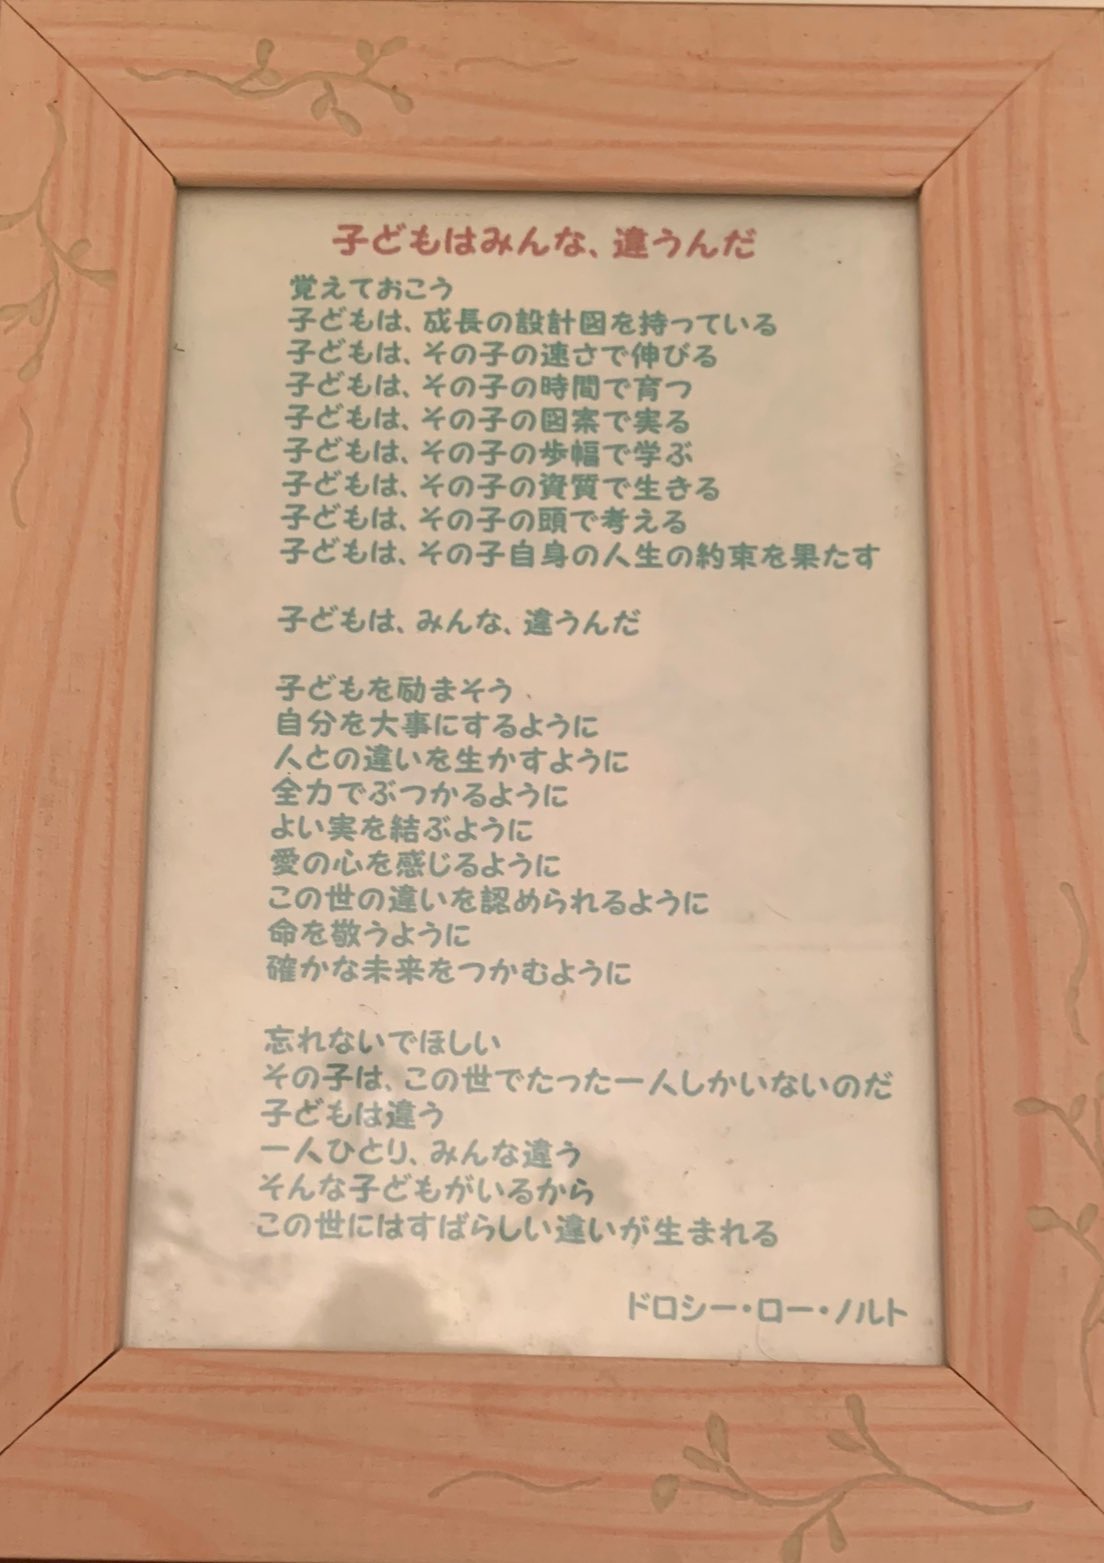 子どもはみんな、違うんだ
覚えておこう
子どもは、成長の設計図を持っている
子どもは、その子の速さで伸びる
子どもは、その子の時間で育つ
子どもは、その子の図案で実る
子どもは、その子の歩幅で学ぶ
子どもは、その子の資質で生きる
子どもは、その子の頭で考える
子どもは、その子自身の人生の約束を果たす
子どもは、みんな、違うんだ
子どもを励まそう
自分を大事にするように
人との違いを生かすように
全力でぶつかるように
よい実を結ぶように
愛の心を感じるように
この世の違いを認められるように
命を敬うように
確かな未来をつかむように
忘れないでほしい
その子は、この世でたった一人しかいないのだ
子どもは違う
一人ひとり、みんな違う
そんな子どもがいるから
この世にはすばらしい違いが生まれる
ドロシー・ロー・ノルト